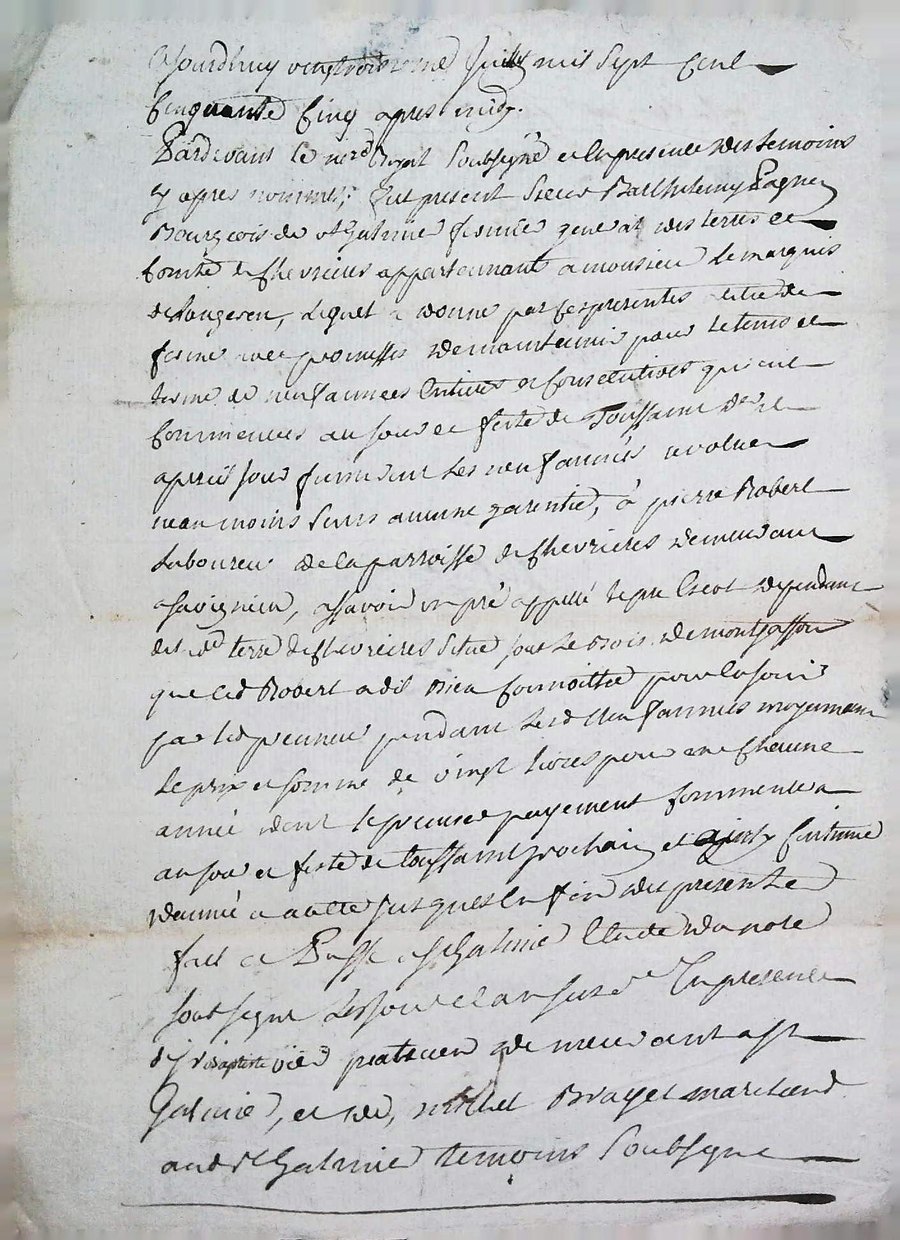 Ajourdhuy vingttroisieme Juillet mil Sept Cent
Cinquante Cinq apres midy.
Pardevant le nore Royal Soubsigné et En presence des temoins
Cy apres nommés, fut present Sieur Barthelemy Pagnon
Bourgeois de st Galmier fermier general des terres et
Comté de Chevrieres appartennant a monsieur le marquis
de, lequel a donné par Ces presentes a titre de
ferme avec promesses de maintenir pour le tems et
terme de neuf années Entieres et Consecutives qui ont
Commencées au jour et feste de Toussaint der et
a pareil jour finiront les neuf années revolues
neanmoins sans aucune garentie, à pierre Robert
laboureur de la parroisse de Chevrieres demeurant
a Savignieu, assavoir un pré appellé le pre Escot dependant
de lade terre de Chevrieres Situé sous le Bois de montjaffou
que led Robert a dit Bien Connoittre pour la jouir
par led preneur pendant lesd neuf années moyennant
le prix et somme de vingt livres pour une Chacune
année dont le premier payement Commencera
au jour et feste de toussaint prochain et ainsy Continué
dannée a autre jusques En fin des presentes
fait et Passé a st Galmier Etude du nore
soubsigné les jour et an susdt En presence
de jn baptiste vier praticien demeurant a st
Galmier, et de, michel Brayet marchand
aud st Galmier temoins Soubsignés